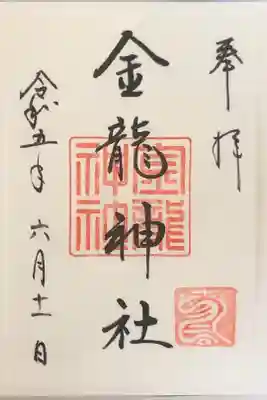 奉拝
金龍神社
金龍神社
令和五年 六月十一日